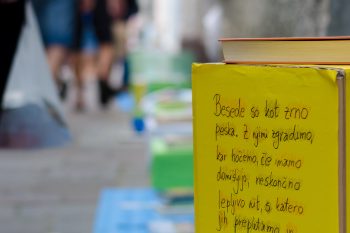 Besede so kot zrno
peska. Z njimi zgradimo,
kar hočemo, če imamo
domišljijo, neskončno
lepljivo nit, s katero
jih prepletamo in